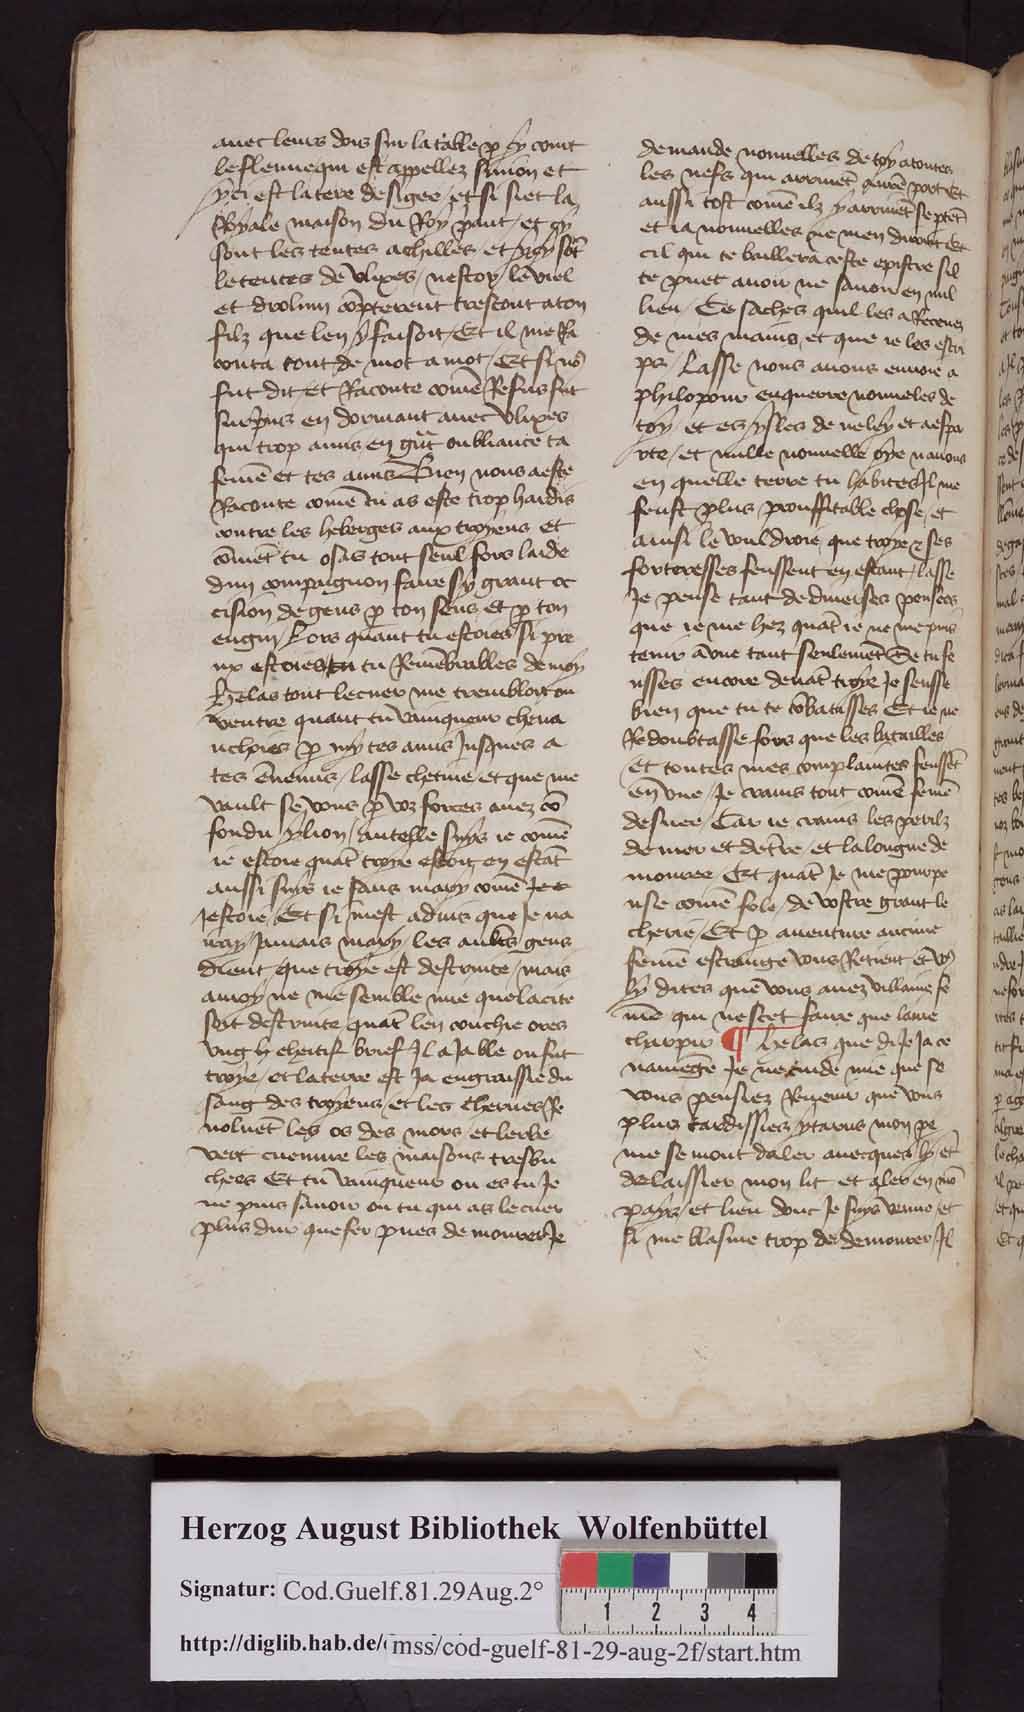 auec leurs dois sur la table p cy court
le fleuue qui est appellez simon et
yci est la tere de sigee et si siet la
Royale maison du Roy priant et cy
sont les tentes achilles et vecy sōt
le tentes de vlixes nestor le viel
et drolum cōpterent trestout a ton
filz que len y faisoit Et il me Ra
conta tout de mot a mot Et si no9
fut dit et Raconte comē Resus fut
surpris en dormant auec vlixes
qui trop amis en grāt oubliance ta
femē et tes amis Bien nous a este
Raconte comē tu as este trop hardis
contre les heberges aux troyens et
cōmēt tu osas tout seul fors laide
dun compaignon faire sy grant oc
cision de gens p ton sens et p ton
engin Lors quant tu estoies si pre
ux estoies tu Remēbrables de moy
Helas tout le cuer me trembloit ou
ventre quant tu vainqueur cheua
uchoies p my tes amis Jusques a
tes ēnemis lasse chetiue et que me
vault se vous p voz forces auez cō
fondu ylion autelle suys ie comē
ie estoie quāt troye estoit en estāt
aussi suys ie sans mary comē Je
Jestoie Et si mest aduis que Je na
uray Jamais mary les aultrs gens
dient que troye est destruite mais
a moy ne me semble mie que la cite
soit destruite quāt len couchie ores
vng h eheritif brief Jl a Jable ou fut
troye et la terre est Ja engraissie du
sang des troyens et les cherues Re
voluēt les os des mors et lerbe
vert cueuure les maisons tresbu
chees Et tu vainqueur ou es tu Je
ne puis sauoir ou tu qui as le cuer
plus dur que fer pues demourer Je
demande nouuelles de toy a toutes
les nefs qui arriuēt a nrē port Et
aussi tost comē ilz y arriuēt se ptēt
et ia nouuelles ne men diront Et
cil qui te baillera ceste epistre sil
te puet auoir ne sauoir en nul
lieu Ce saches quil les a Receuez
de mes mains et que ie les escri
ps Lasse nous auons enuoie a
philopour enquerre nouueles de
toy et es ysles de neley et aespa
rte et nulle nouuelle oye nauons
en quelle terre tu habites Jl me
feust plus prouffitable chose et
ainsi le vouldroie que troye et ses
forteresses feussent en estant lasse
Je pense tant de diuerses pensees
que ie me hez quāt ie ne me puis
tenir a vne tant seulemēt Se tu fe
usses encore deuāt troye Je seusse
bien que tu te cōbatisses Et ie ne
Redoubtasse fors que les batailles
Et toutes mes complaintes feussēt
en vne Je crains tout comē femē
desuee Car ie crains les perilz
de mer et de tre et la longue de
mouree Et quāt Je me pourpe
nse comē fole de vostre grant le
cherie Et p auenture aucune
femē estrange vous Retient et vo9
ly dites que vous auez villaine fe
mē qui ne scet faire que laine
charpir ¶ helas que di Je Ja ce
nauiegne Je ne cuide mie que se
vous pensiez Reuenir que vous
plus tardissiez ytarus mon pe
nie semont daler auecques ly et
delaissier mon lit et aler en mō
pays et lieu dont Je suys venue et
si me blasme trop de demourer Jl
Herzog August Bibliothek Wolfenbüttel
Signatur: Cod.Guelf.81.29Aug.2°
1 2 3 4
http://diglib.hab.de/mss/cod-guelf-81-29-aug-2f/start.htm